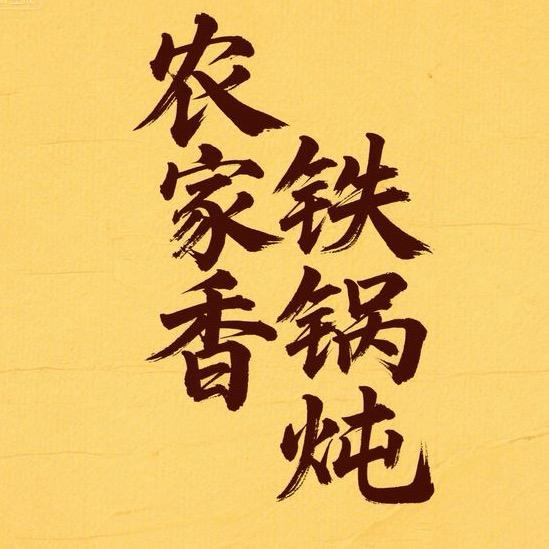 农家香
铁锅炖